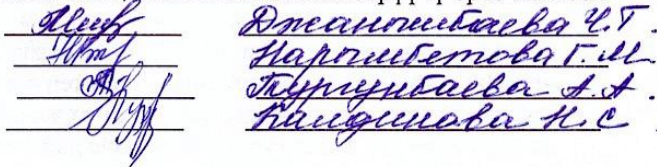 Джанышбаева Ч.Т.
Нарымбетова Г.М
Тургунбаева А.А.
Калдинова Н.С